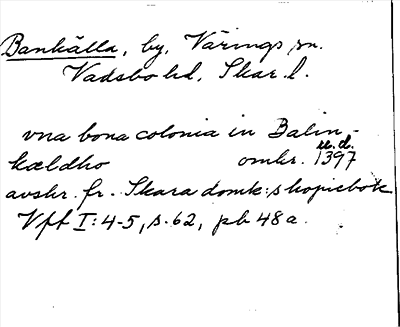 Bankälla, by, Värings sn.
Vadsbo hd, Skar. l.
vna bona colonia in Balin-
kældho omkr. 1397 u.d.
avskr. fr. Skara domk:s kopiebok
Vff I:4-5, s. 62, pb 48a.